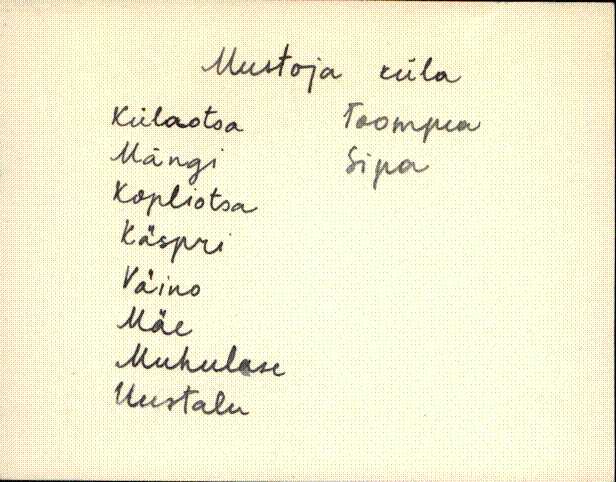 Mustoja küla
Külaotsa
Mängi
Kopliotsa
Käspri
Väino
Mäe
Muhulase
Uustalu
Toompea
Sipa